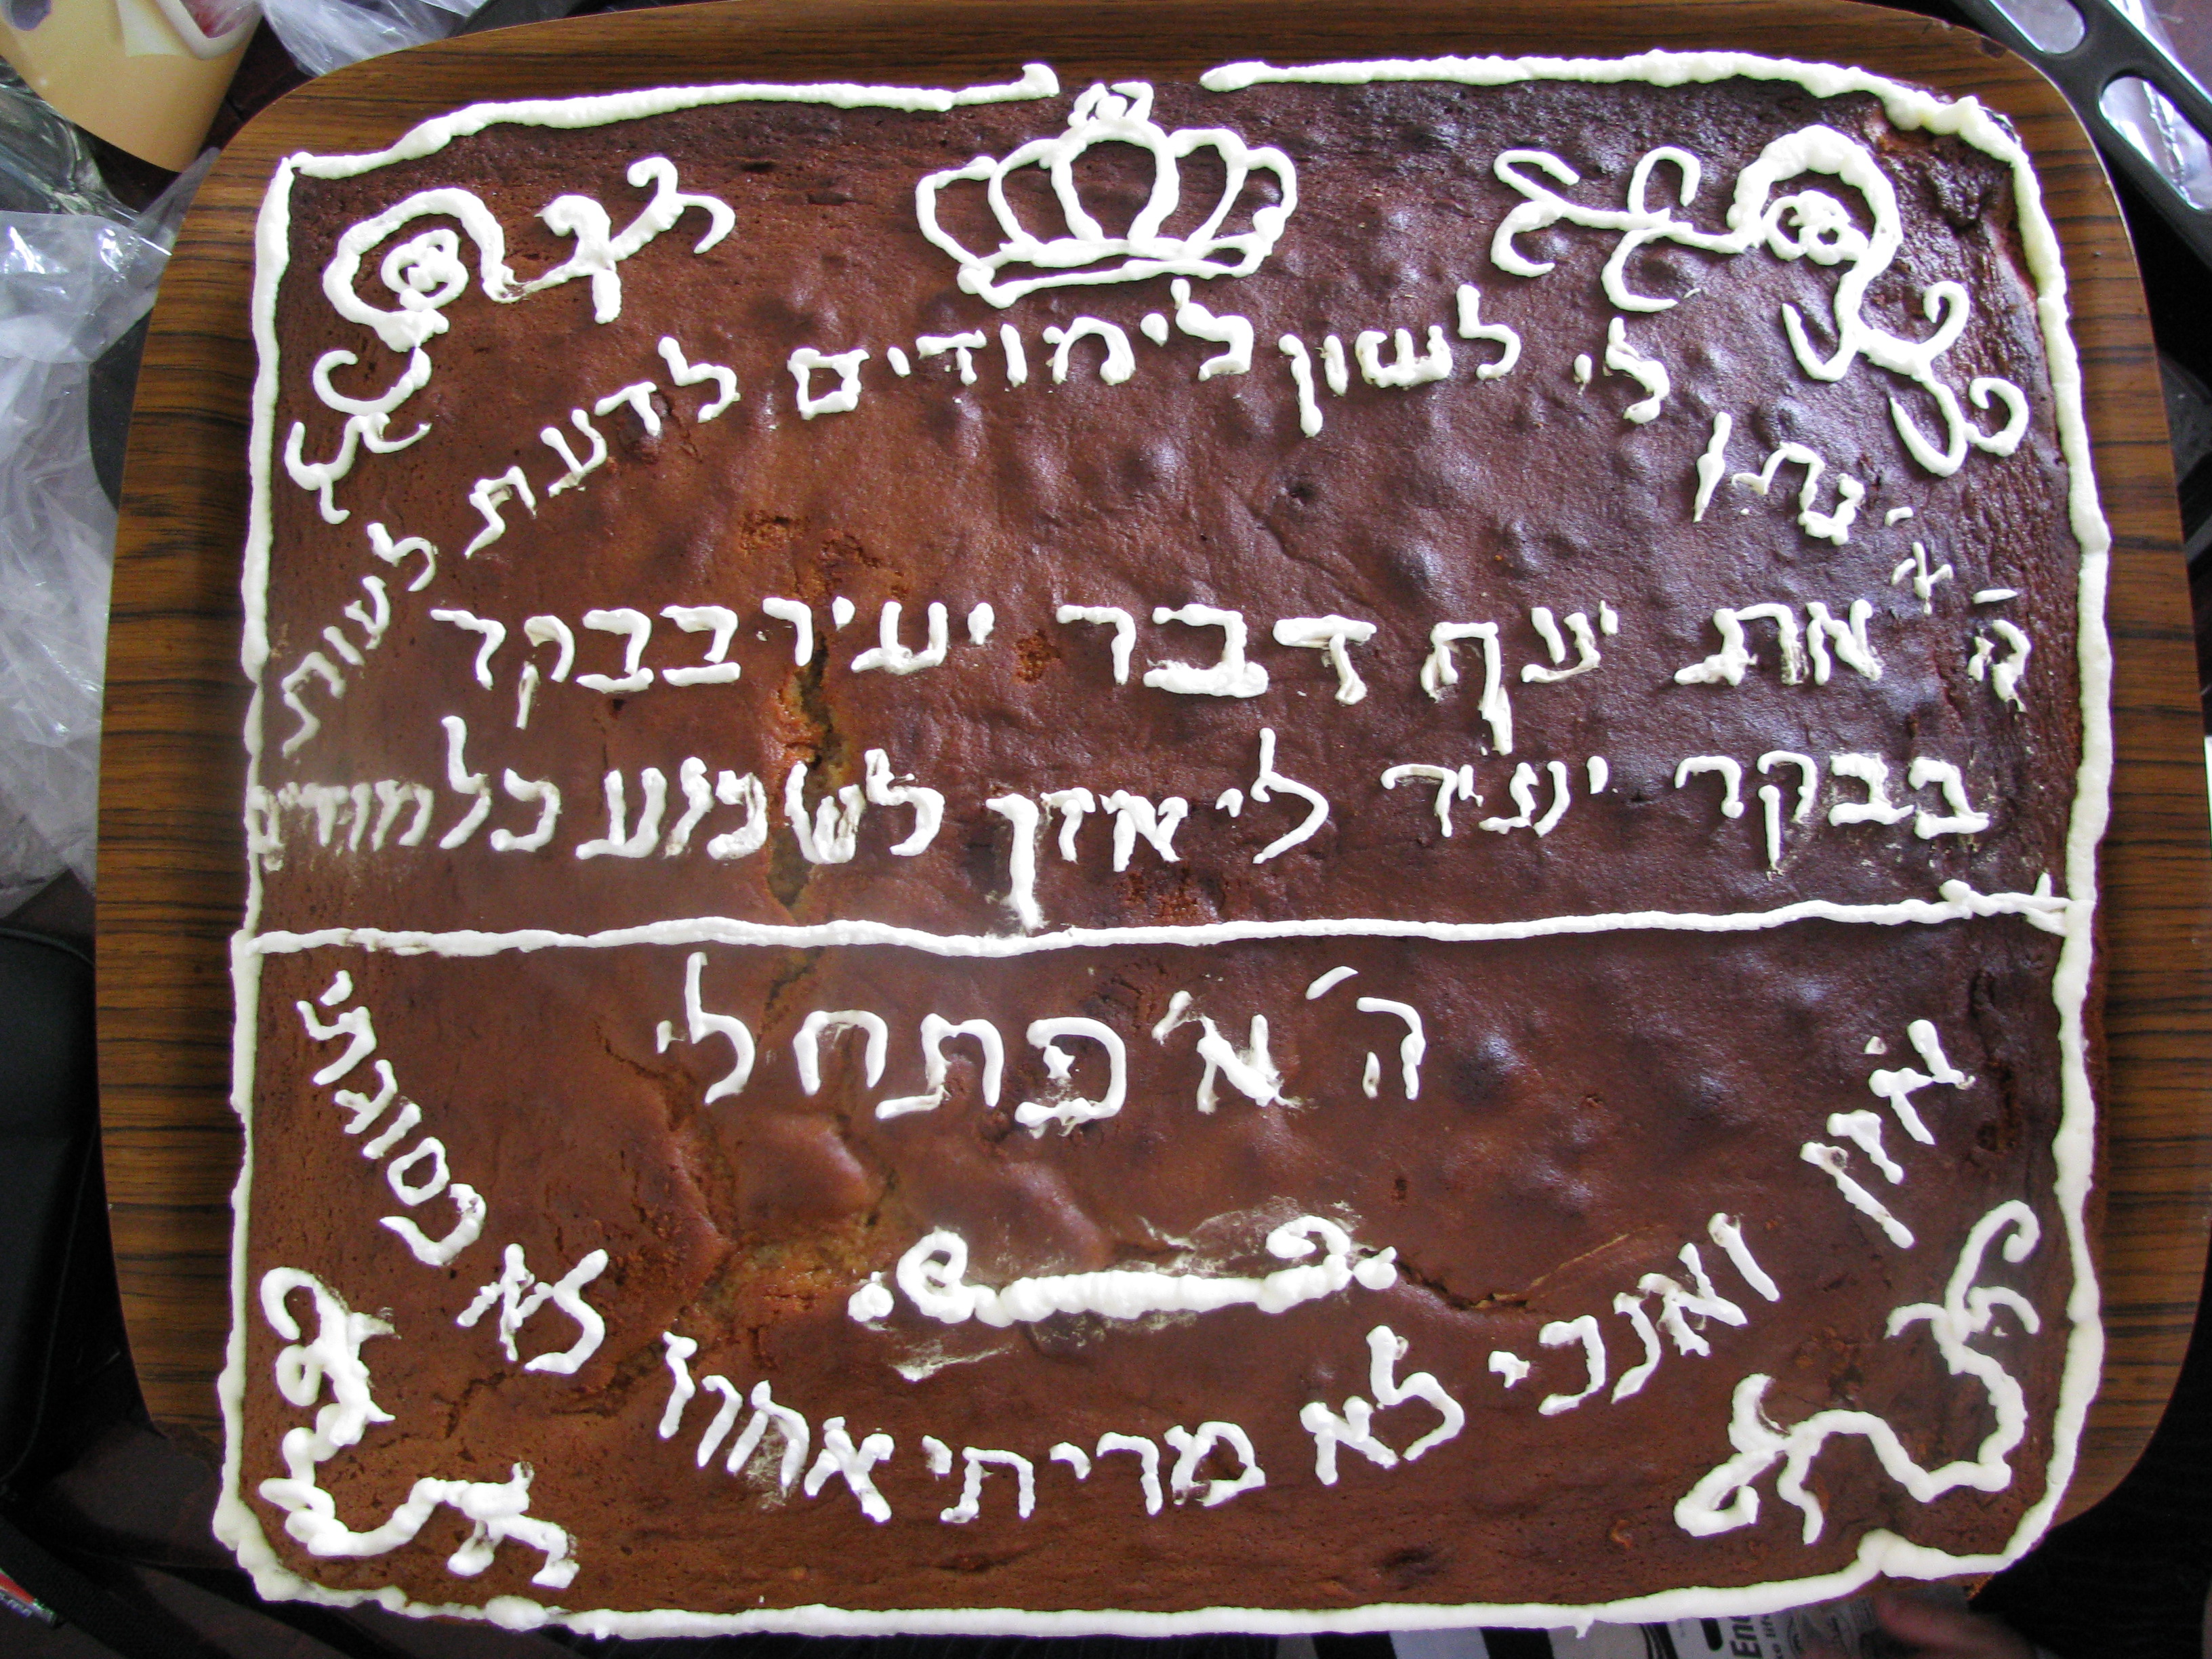 ה' א' נתן לי לשון לימודים לדעת לעות
את יעף דבר יעיר בבקר
בבקר יעיר לי אזן לשמע כלמודים
ה' א' פתח לי
אזן ואנכי לא מריתי אחור לא נסוגתי